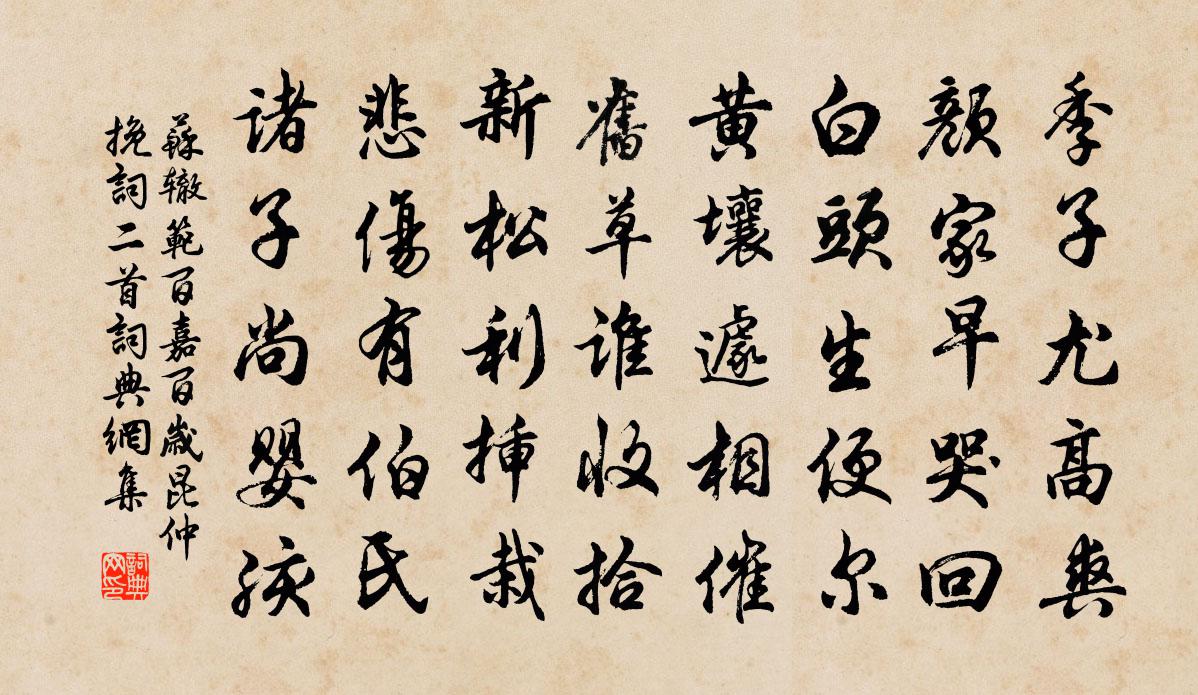 季子尤高爽
顏家早哭回
白頭生便尔
黄壤遽相催
舊草誰收拾
新松利揷栽
悲傷有伯氏
諸子尚嬰孩
蘇轍範百嘉百歲昆仲
挽詞二首詞典網集
詞典网印